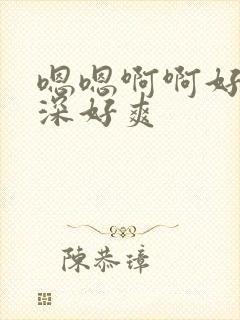 嗯嗯啊啊好
深好爽
陈恭璋